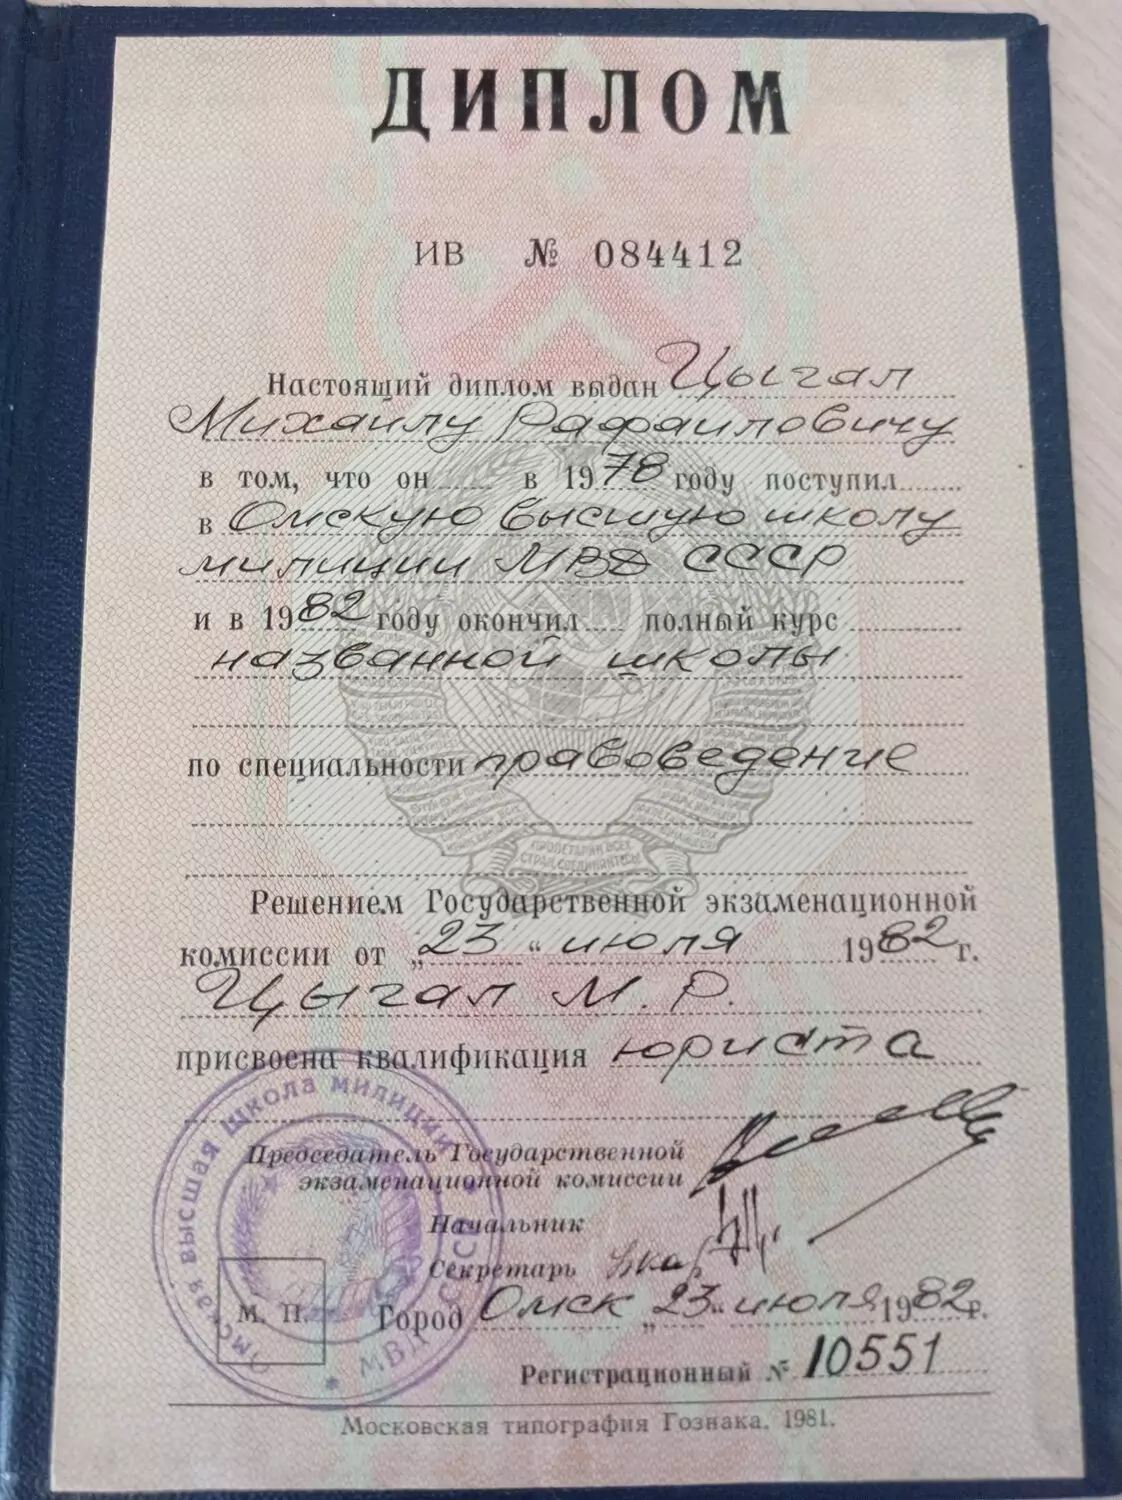 ДИПЛОМ
ИВ № 084412
Настоящий диплом выдан Цыгал
Михаилу Рафаиловичу
в том, что он в 1978 году поступил
в Омскую высшую школу
милиции МВД СССР
и в 1982 году окончил полный курс
названной школы
по специальности правоведение
Решением Государственной экзаменационной
комиссии от „23 “ июля 1982 г.
Цыгал М. Р.
присвоена квалификация юриста
Председатель Государственной
экзаменационной комиссии
Начальник
Секретарь
М. П. Город Омск „23 “ июля 1982 г.
Регистрационный № 10551
Московская типография Гознака. 1981.
Омская высшая школа милиции
МВД СССР
ПРОЛЕТАРИИ ВСЕХ
СТРАН, СОЕДИНЯЙТЕСЬ!